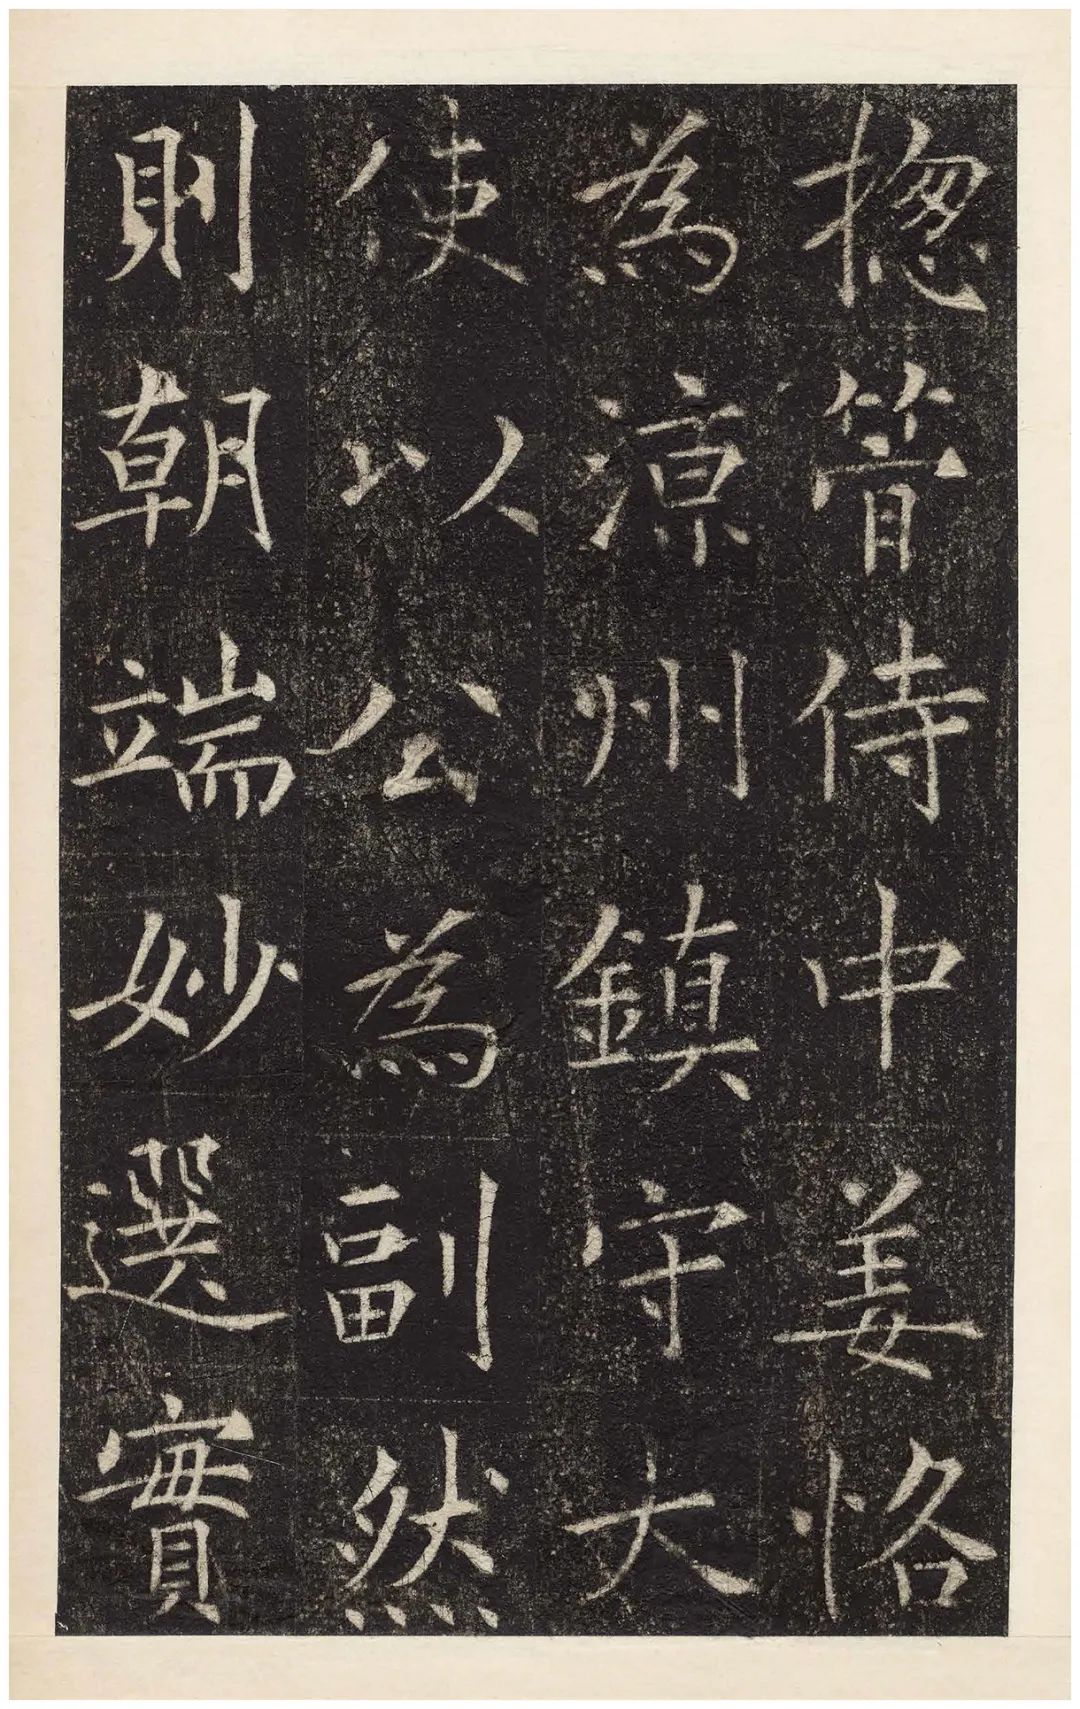 揔管侍中姜恪
為涼州鎮守大
使以公為副然
則朝端妙選實